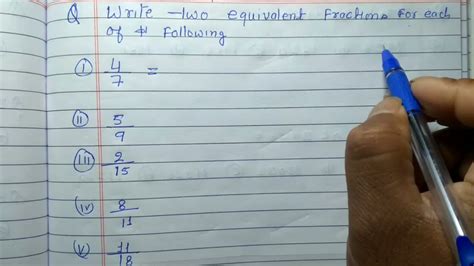 Q Write two equivalent Fractions for each
of the Following
(i) 4/7 =
(ii) 5/9
(iii) 2/15
(iv) 8/11
(v) 11/18